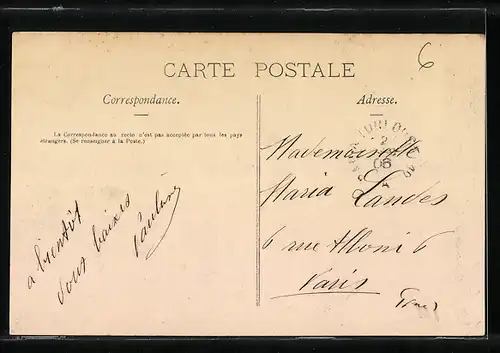 6
CARTE POSTALE
Correspondance.
Adresse.
La Correspondance au recto n'est pas acceptée par tous les pays
étrangers. (Se renseigner à la Poste.)
06
Mademoiselle
Maria Landes
6 rue Alboni 6
Paris
a bientôt
doux baisers
Pauline